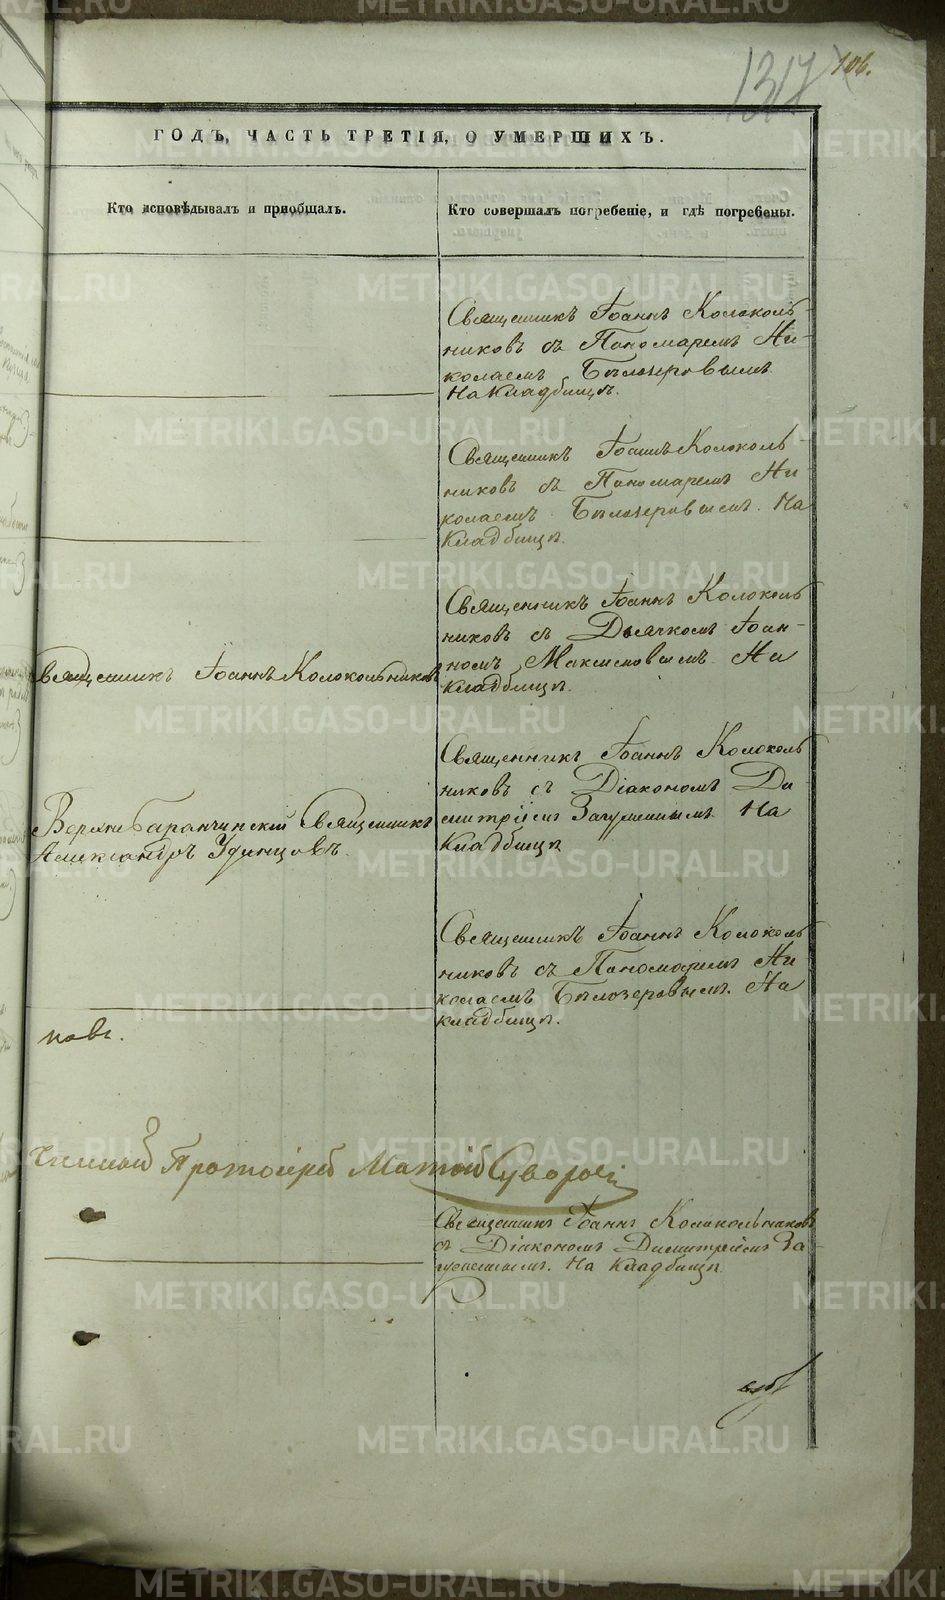 1317 106.
ГОДЪ, ЧАСТЬ ТРЕТІЯ, О УМЕРШИХЪ.
Кто исповѣдывалъ и пріобщалъ.
Кто совершалъ погребеніе, и гдѣ погребены.
Священникъ Іоаннъ Колоколь-
никовъ съ Пономаремъ Ни-
колаемъ Бѣлозеровымъ
На Кладбищѣ.
Священникъ Іоаннъ Колоколь-
никовъ съ Пономаремъ Ни-
колаемъ Бѣлозеровымъ. На
Кладбищѣ.
Священникъ Іоаннъ Колокольниковъ
Священникъ Іоаннъ Колоколь
никовъ съ Дьячкомъ Іоан-
номъ Максимовымъ На
кладбищѣ.
Верхнебаранчинскій Священникъ
Александръ Удинцовъ.
Священникъ Іоаннъ Колоколь
никовъ съ Діакономъ Ди
митріемъ На
Кладбищѣ
Священникъ Іоаннъ Колоколь
никовъ съ Пономаремъ Ни
колаемъ Бѣлозеровымъ. На
кладбищѣ.
новъ.
Протоіерей Матѳій Суворовъ
Священникъ Іоаннъ Колокольниковъ
съ Діакономъ Димитріемъ За-
На Кладбищѣ
METRIKI.GASO-URAL.RU